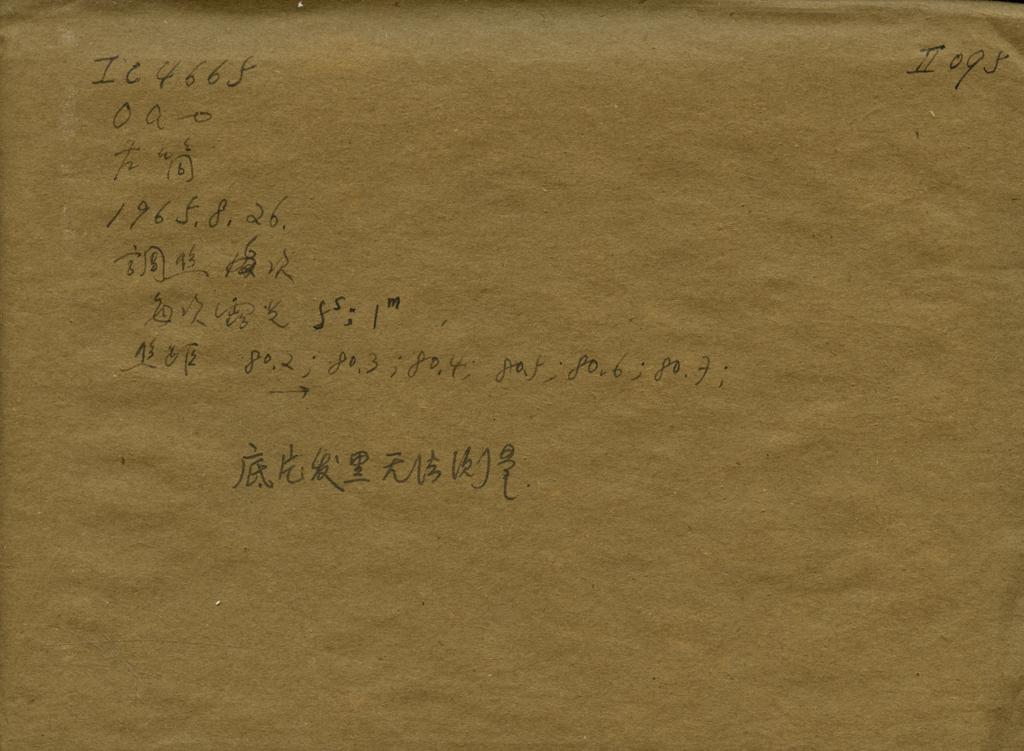 IC 4665
II 095
OaO
左筒
1965.8.26.
調焦 每次
每次露光 5ˢ; 1ᵐ
焦距 80.2; 80.3; 80.4; 80.5; 80.6; 80.7;
→
底片发黑无法测量.